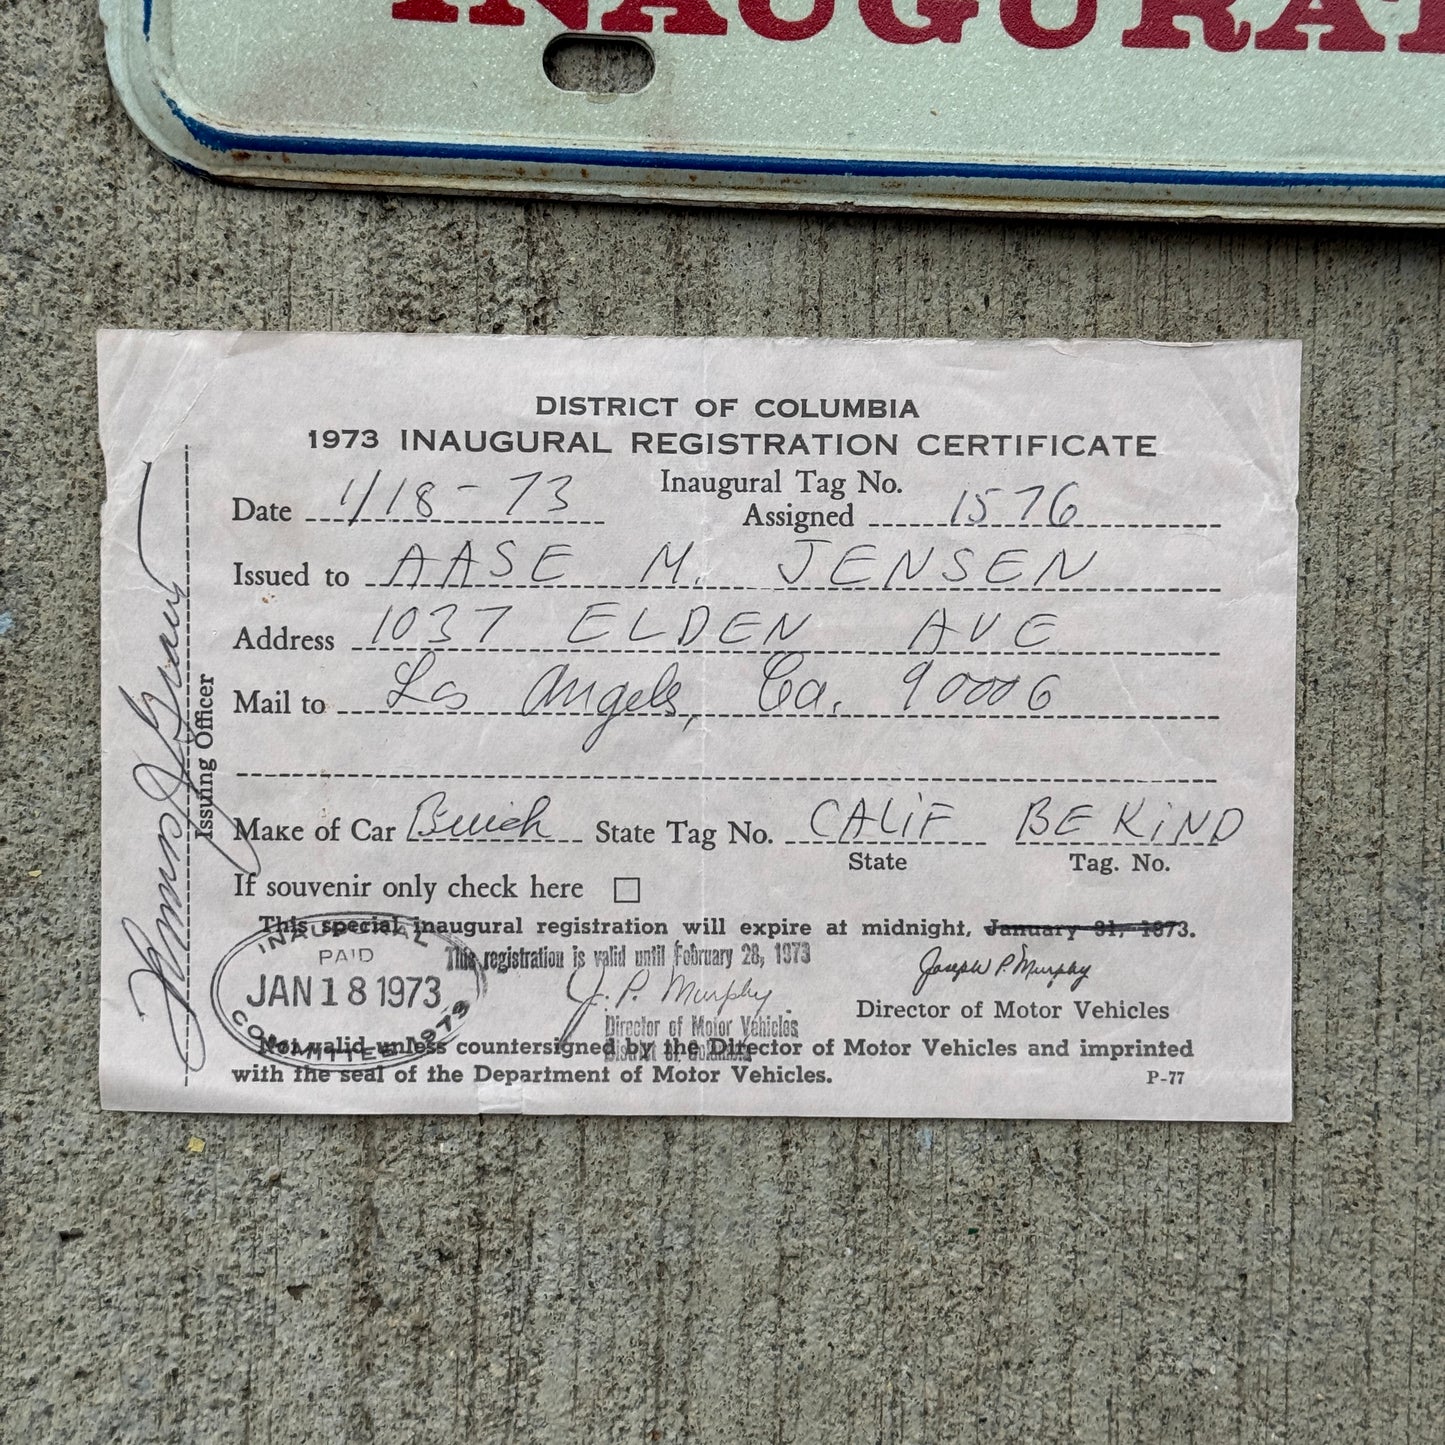 INAUGURAT
DISTRICT OF COLUMBIA
1973 INAUGURAL REGISTRATION CERTIFICATE
Date 1/18-73 Inaugural Tag No. Assigned 1576
Issued to AASE M. JENSEN
Address 1037 ELDEN AVE
Mail to Los Angels, Ca. 90006
Make of Car Buick State Tag No. CALIF BE KIND
State Tag. No.
If souvenir only check here
This special inaugural registration will expire at midnight, January 31, 1973.
This registration is valid until February 28, 1973
J. P. Murphy
Director of Motor Vehicles
District of Columbia
Joseph P. Murphy
Director of Motor Vehicles
Not valid unless countersigned by the Director of Motor Vehicles and imprinted
with the seal of the Department of Motor Vehicles. P-77
INAUGURAL
PAID
JAN 18 1973
COMMITTEE 1973
Issuing Officer